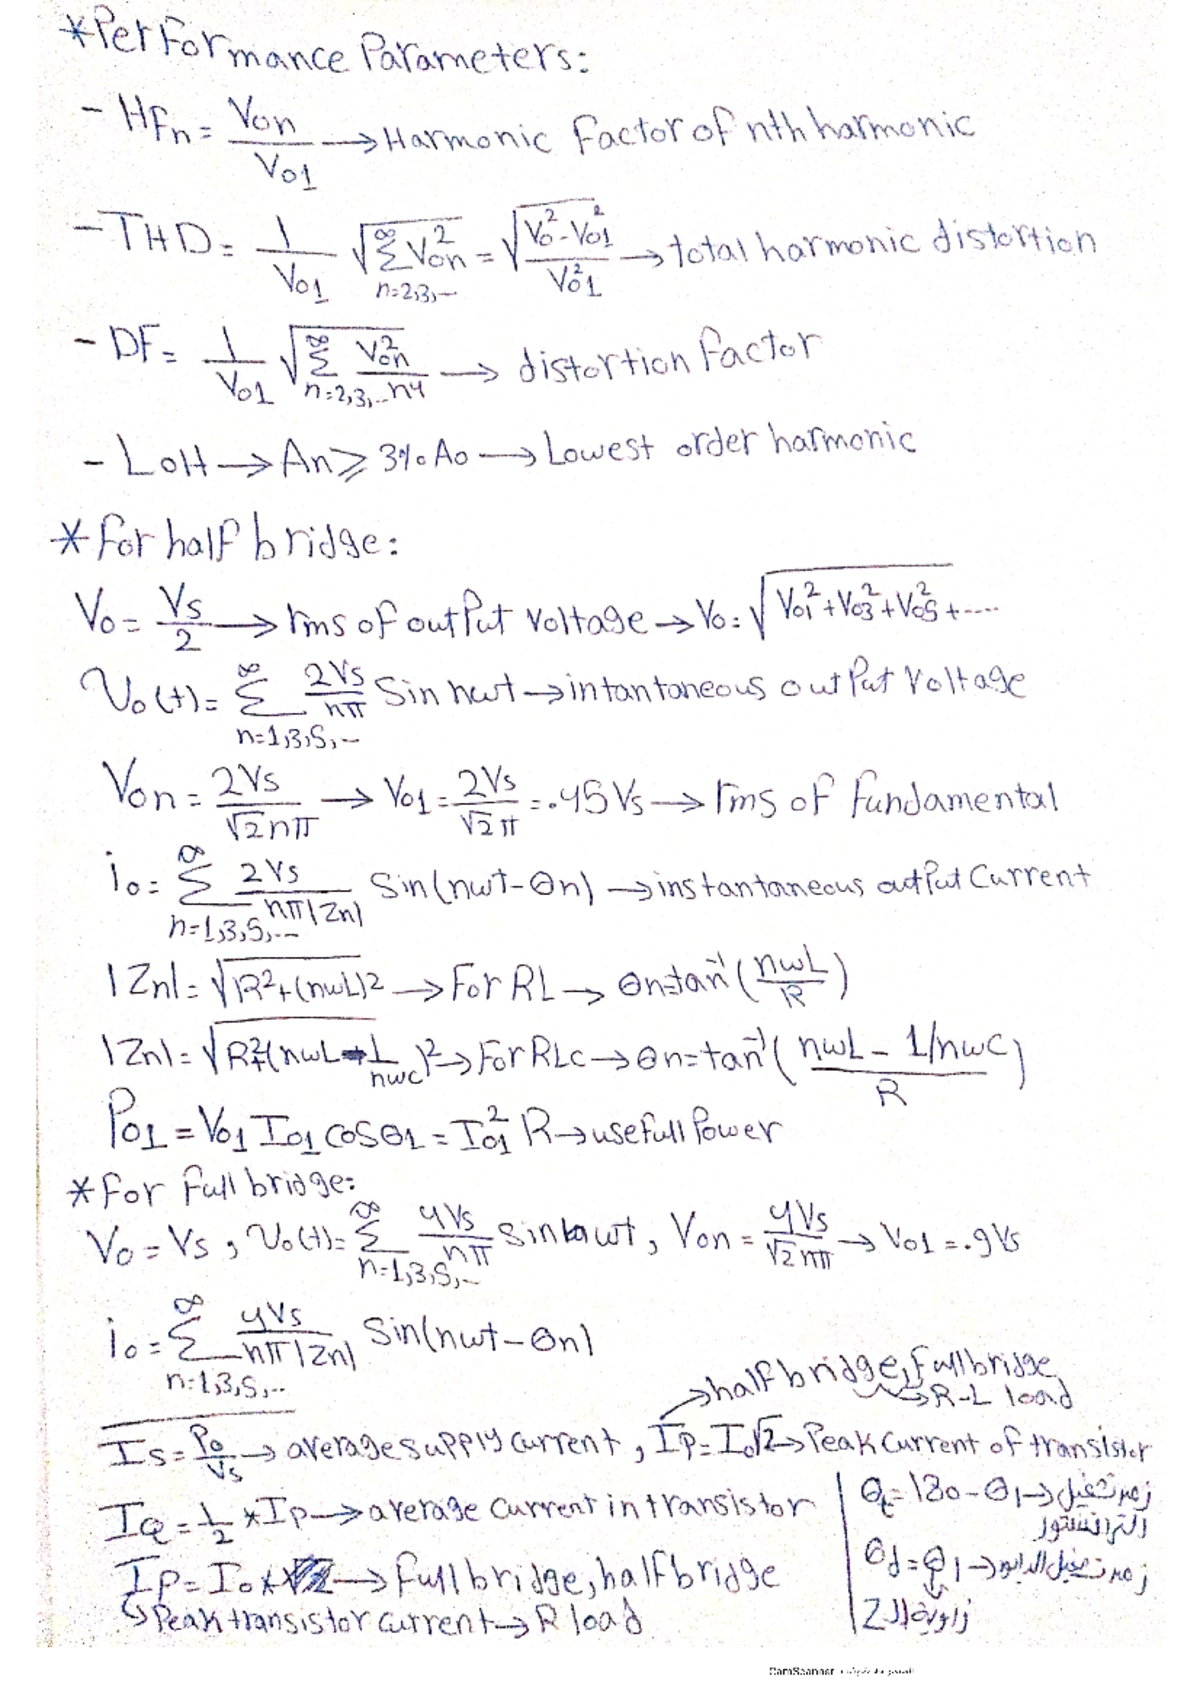 *Performance Parameters:
- HFn = Von/Vo1 → Harmonic Factor of nth harmonic
- THD = 1/Vo1 √(∞Σn=2,3,... Von²) = √((Vo² - Vo1²)/Vo1²) → total harmonic distortion
- DF = 1/Vo1 √(∞Σn=2,3,... Von²/n4) → distortion factor
- LOH → An ≥ 3% Ao → Lowest order harmonic
* for half bridge:
Vo = Vs/2 → rms of output voltage → Vo = √(Vo1² + Vo3² + Vo5² + ....
Vo(t) = ∞Σn=1,3,5,... 2Vs/nπ Sin nwt → intantoneous output Voltage
Von = 2Vs/√2nπ → Vo1 = 2Vs/√2π = .45Vs → rms of fundamental
io = ∞Σn=1,3,5,... 2Vs/nπ|Zn| Sin(nwt - θn) → instantaneous output Current
|Zn| = √(R² + (nwL)2 → For RL → θn=tan⁻¹(nwL/R)
|Zn| = √(R²+(nwL - 1/nwc)² → For RLC → θn=tan⁻¹((nwL - 1/nwC)/R)
Po1 = Vo1 Io1 cosθ1 = Io1² R → usefull Power
* For full bridge:
Vo = Vs , Vo(t) = ∞Σn=1,3,5,... 4Vs/nπ sin nwt , Von = 4Vs/√2nπ → Vo1 = .9Vs
io = ∞Σn=1,3,5,... 4Vs/nπ|Zn| Sin(nwt - θn)
→ half bridge, full bridge
→ R-L load
Is = Po/Vs → average supply current , Ip = Io√2 → Peak current of transistor
IQ = 1/2 * Ip → average current in transistor
θt = 180 - θ1 → زمن تشغيل
الترانزستور
Ip = Io → full bridge, half bridge
θd = θ1 → زمن تشغيل الدايود
↳ Peak transistor current → R load
زاوية ال Z
CamScanner